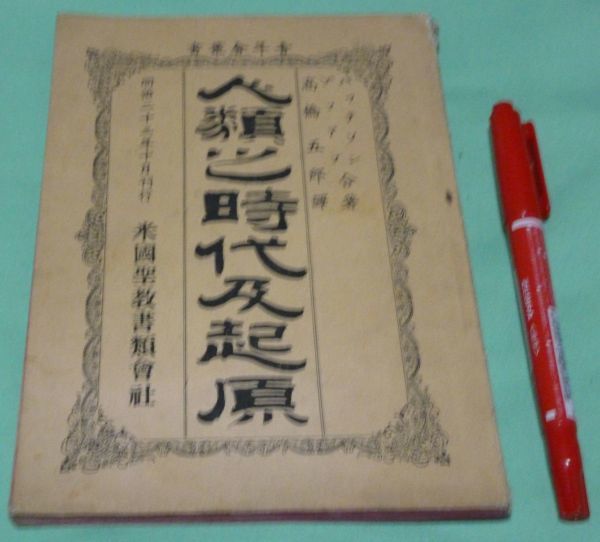 青年會叢書
パッテソン合著
高橋五郎譯
人類之時代及起原
明治二十三年十月刊行
米國聖教書類會社